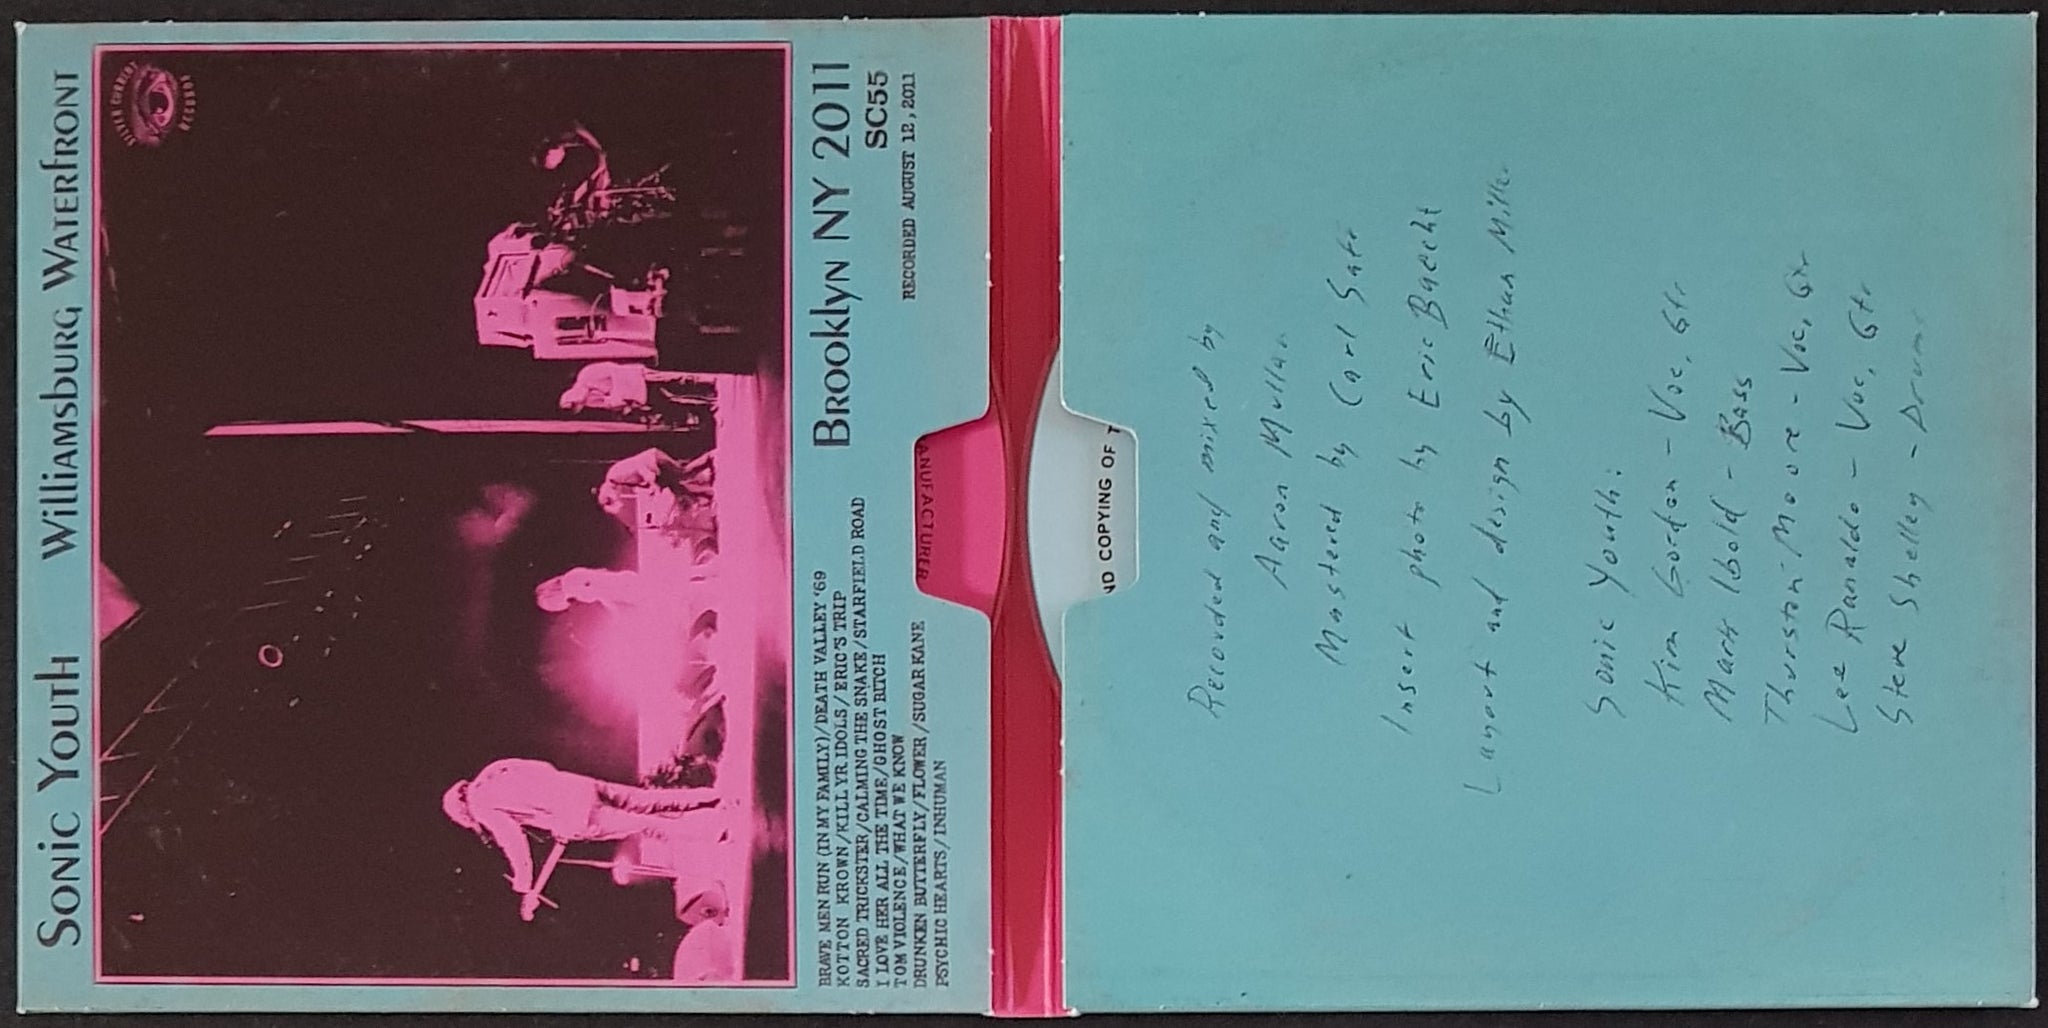 SONIC YOUTH WILLIAMSBURG WATERFRONT
SILVER CURRENT
RECORDS
BROOKLYN NY 2011
SC55
RECORDED AUGUST 12, 2011
BRAVE MEN RUN (IN MY FAMILY)/DEATH VALLEY '69
KOTTON KROWN/KILL YR IDOLS/ERIC'S TRIP
SACRED TRICKSTER/CALMING THE SNAKE/STARFIELD ROAD
I LOVE HER ALL THE TIME/GHOST BITCH
TOM VIOLENCE/WHAT WE KNOW
DRUNKEN BUTTERFLY/FLOWER/SUGAR KANE
PSYCHIC HEARTS/INHUMAN
ANUFACTURER
ND COPYING OF T
Recorded and mixed by
Aaron Mullan
Mastered by Carl Saff
Insert photo by Eric Baecht
Layout and design by Ethan Miller
Sonic Youth:
Kim Gordon - Voc, Gtr
Mark Ibold - Bass
Thurston Moore - Voc, Gtr
Lee Ranaldo - Voc, Gtr
Steve Shelley - Drums